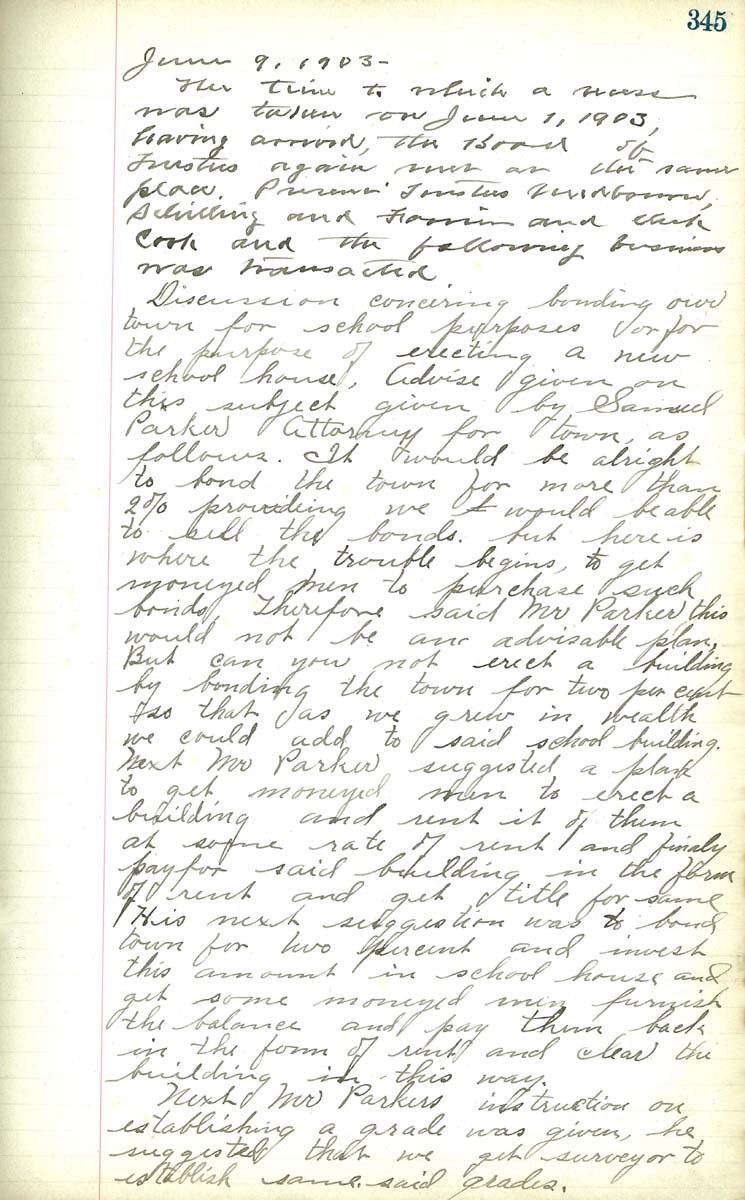 345
June 9, 1903-
The time to which a recess
was taken on June 1, 1903,
having arrived, the Board of
Trustees again met at the same
place. Present Trustees
Schilling and and clerk
Cook and the following business
was transacted
Discussion conciring bonding our
town for school purposes or for
the purpose of erecting a new
school house, Advise given on
this subject given by Samuel
Parker Attorney for town, as
follows. It would be alright
to bond the town for more than
2% providing we would be able
to sell the bonds. but here is
where the trouble begins, to get
moneyed men to purchase such
bonds, Therefore said Mr Parker this
would not be an advisable plan,
But can you not erect a building
by bonding the town for two per cent
so that as we grew in wealth
we could add to said school building.
Next Mr Parker suggested a plan
to get moneyed men to erect a
building and rent it of them
at some rate of rent and finaly
pay for said building in the form
of rent and get title for same
His next suggestion was to bond
town for two percent and invest
this amount in school house and
get some moneyed men furnish
the balance and pay them back
in the form of rent and clear the
building in this way.
Next Mr Parkers instruction on
establishing a grade was given, he
suggested that we get surveyor to
establish same said grades.